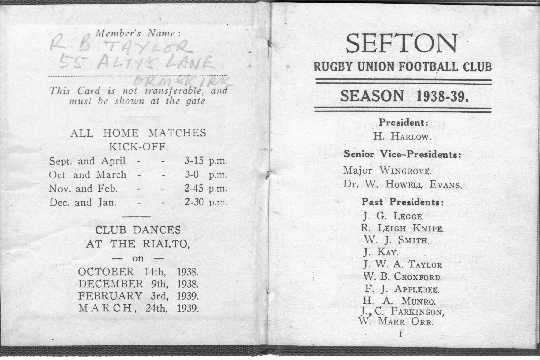 Member's Name:
R B TAYLOR
55 ALTYS LANE
ORMSKIRK
This Card is not transferable, and
must be shown at the gate
ALL HOME MATCHES
KICK-OFF.
Sept. and April - - 3-15 p.m.
Oct and March - - 3-0 p.m.
Nov. and Feb. - - 2-45 p.m.
Dec. and Jan. - - 2-30 p.m.
CLUB DANCES
AT THE RIALTO,
— on —
OCTOBER 14th, 1938.
DECEMBER 9th, 1938.
FEBRUARY 3rd, 1939.
MARCH, 24th, 1939.
SEFTON
RUGBY UNION FOOTBALL CLUB
SEASON 1938-39.
President:
H. HARLOW.
Senior Vice-Presidents:
Major WINGROVE.
Dr. W. HOWELL EVANS.
Past Presidents:
J. G. LEGGE
R. LEIGH KNIPE.
W. J. SMITH.
J. KAY.
J. W. A. TAYLOR
W. B. CROXFORD.
F. J. APPLEBEE.
H. A. MUNRO.
J. C. PARKINSON,
W. MARR ORR.
1